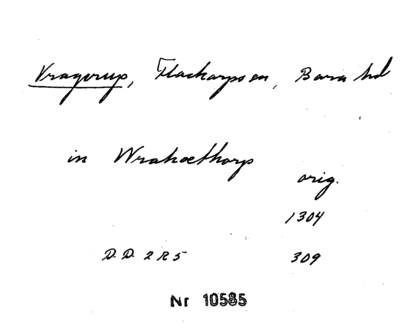 Vragerup, Flackarps sn, Bara hd
in Wrakæthorp
orig.
1304
D.D. 2 R 5 309
Nr 10585